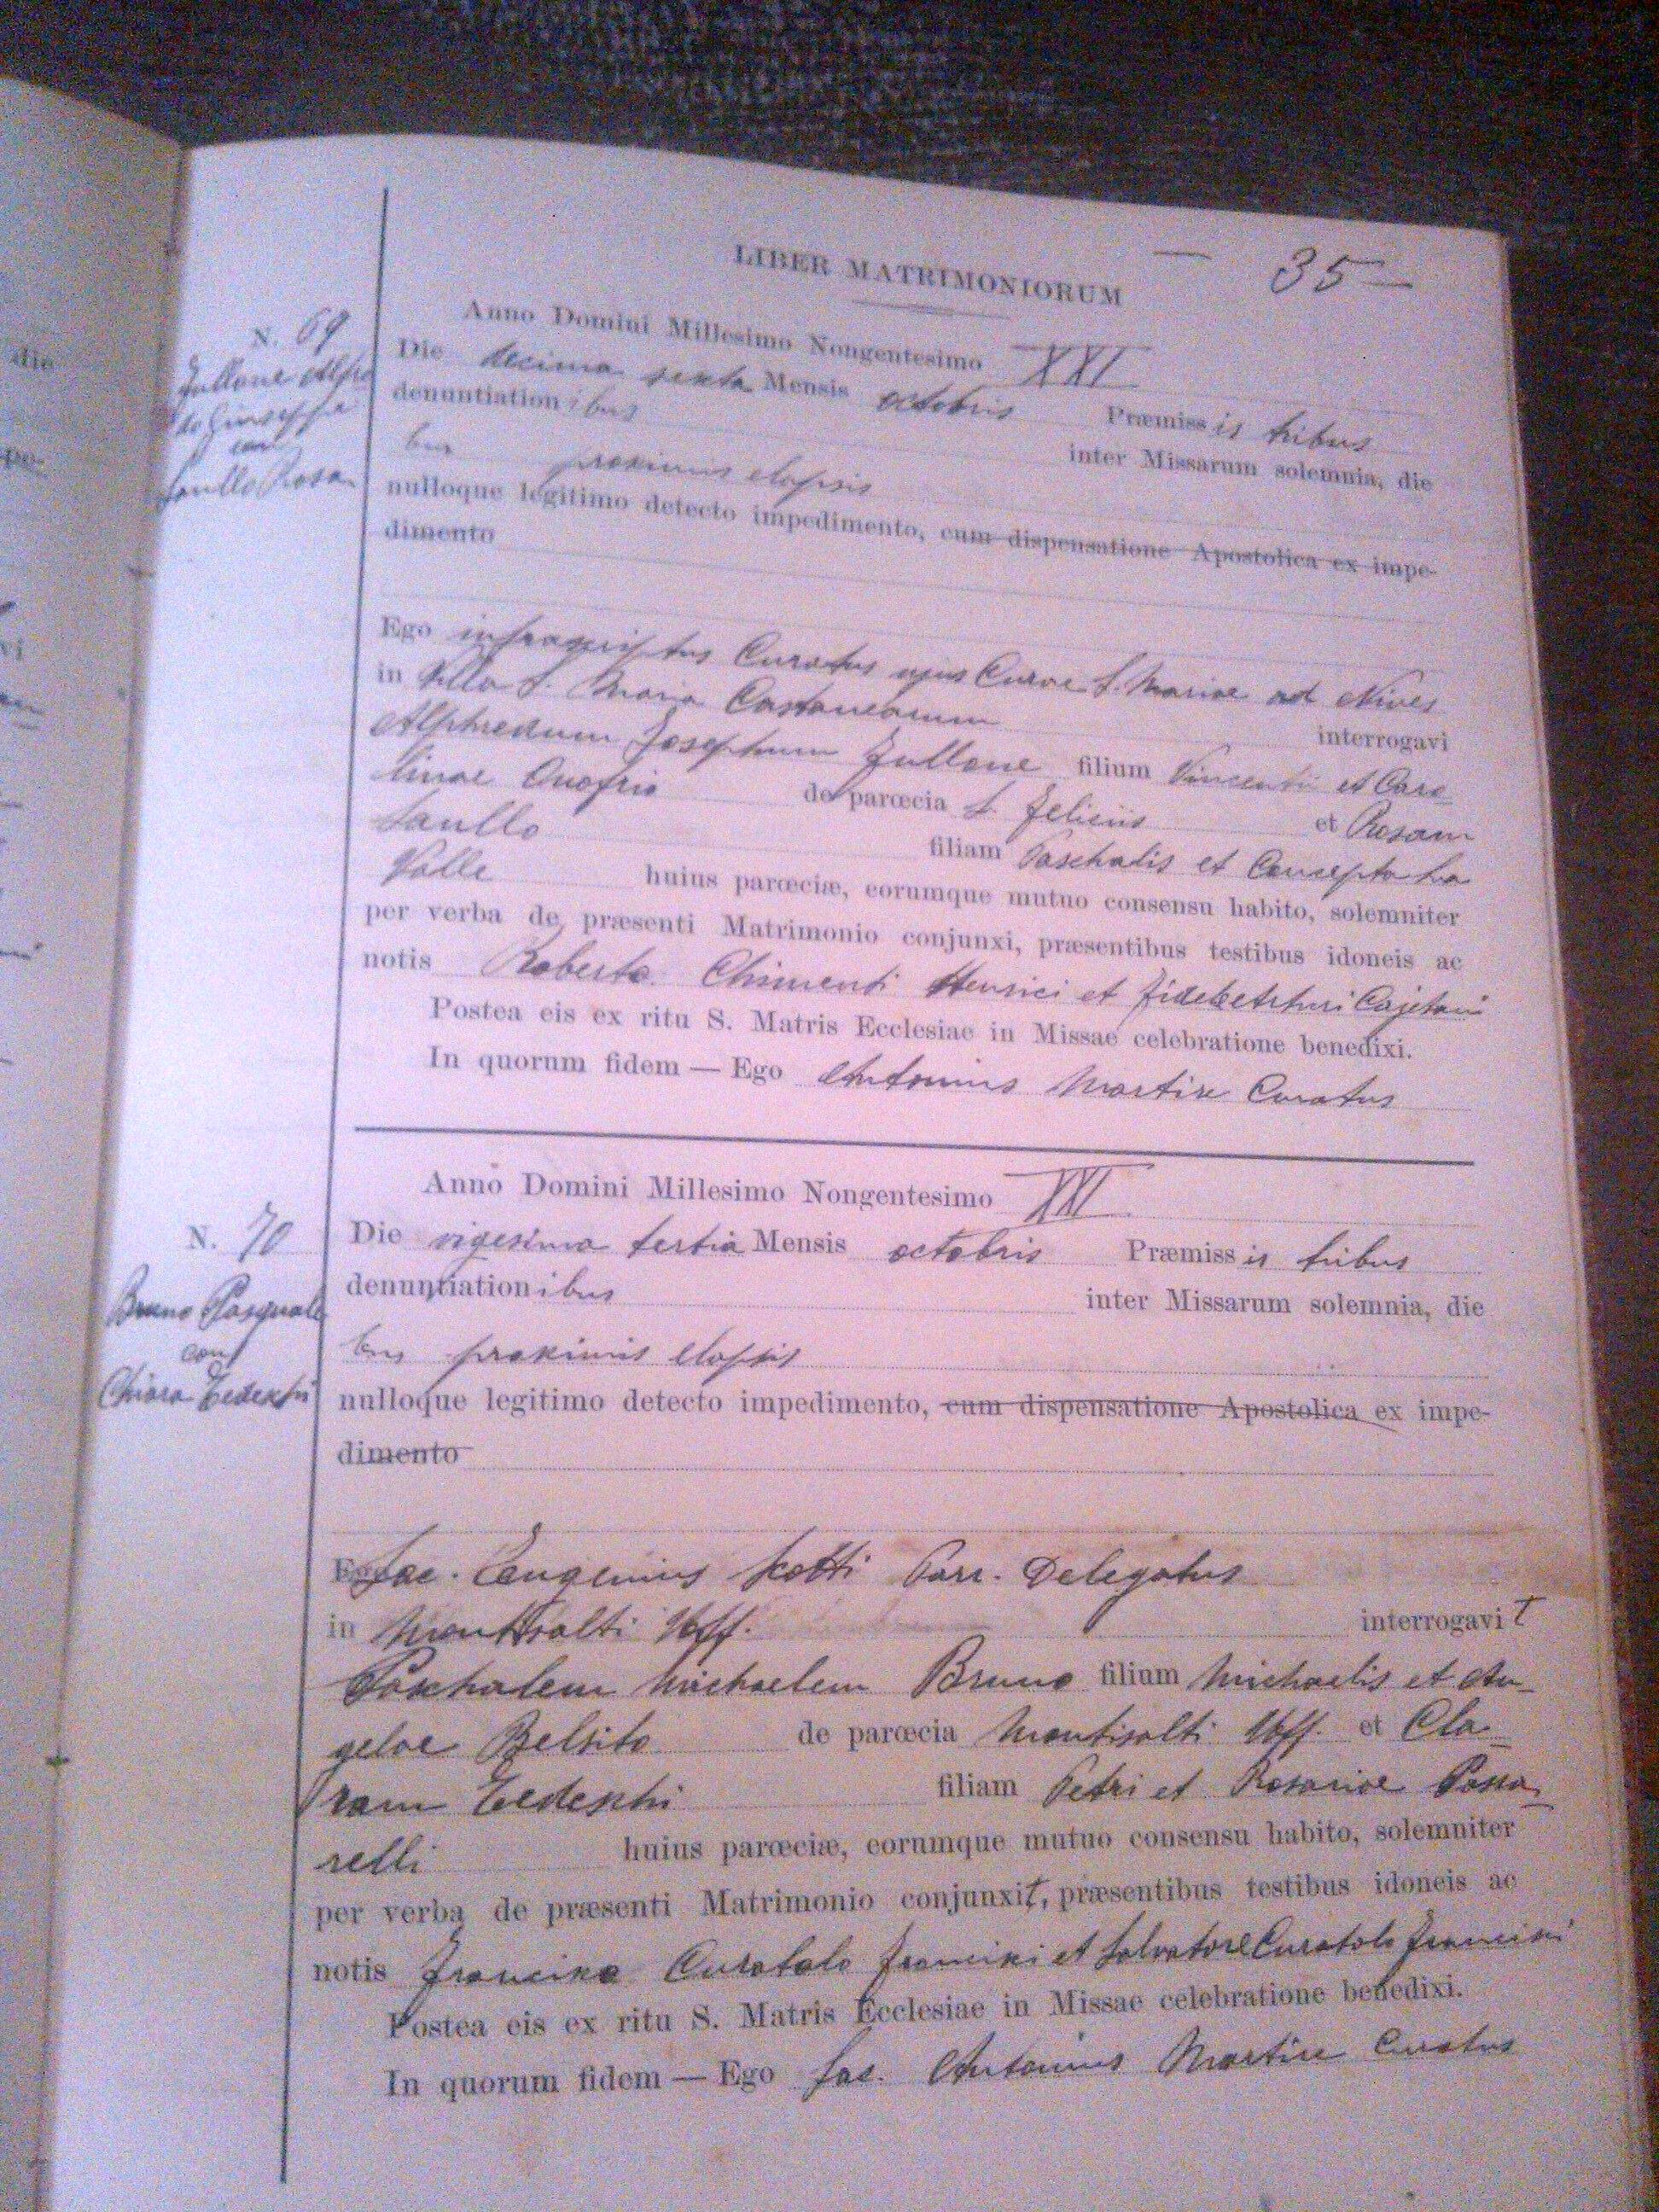 LIBER MATRIMONIORUM
— 35 —
Anno Domini Millesimo Nongentesimo XXI
N. 69
Die decima sexta Mensis octobris Præmissis tribus
denuntiationibus inter Missarum solemnia, die
bus proximis elapsis
nulloque legitimo detecto impedimento, cum dispensatione Apostolica ex impe-
dimento
con
Saullo Rosa
Ego infrascriptus Curatus ejus Curae S. Mariae ad Nives
in Villa S. Maria Castanearum interrogavi
Alphredum Josephum Zullone filium Vincentii et Caro-
linae Onofrio de parœcia S. Felicis et Rosam
Saullo filiam Paschalis et Concepta La
Valle huius parœciæ, eorumque mutuo consensu habito, solemniter
per verba de præsenti Matrimonio conjunxi, præsentibus testibus idoneis ac
notis Roberto Chimenti Henrici et Fidele Arturi Cajetani
Postea eis ex ritu S. Matris Ecclesiae in Missae celebratione benedixi.
In quorum fidem — Ego Antonius Martire Curatus
Anno Domini Millesimo Nongentesimo XXI
N. 70
Bruno Pasquale
con
Chiara Tedeschi
Die vigesima tertia Mensis octobris Præmissis tribus
denuntiationibus inter Missarum solemnia, die
bus proximis elapsis
nulloque legitimo detecto impedimento, cum dispensatione Apostolica ex impe-
dimento
Ego Sac. Eugenius Scotti Parr. Delegatus
in Montisalti Uff. interrogavit
Paschalem Michaelem Bruno filium Michaelis et An-
gelae Belsito de parœcia Montisalti Uff. et Cla-
ram Tedeschi filiam Petri et Rosariae Passa-
relli huius parœciæ, eorumque mutuo consensu habito, solemniter
per verba de præsenti Matrimonio conjunxit, præsentibus testibus idoneis ac
notis Curatolo et Salvatore Curatolo
Postea eis ex ritu S. Matris Ecclesiae in Missae celebratione benedixi.
In quorum fidem — Ego Sac. Antonius Martire Curatus